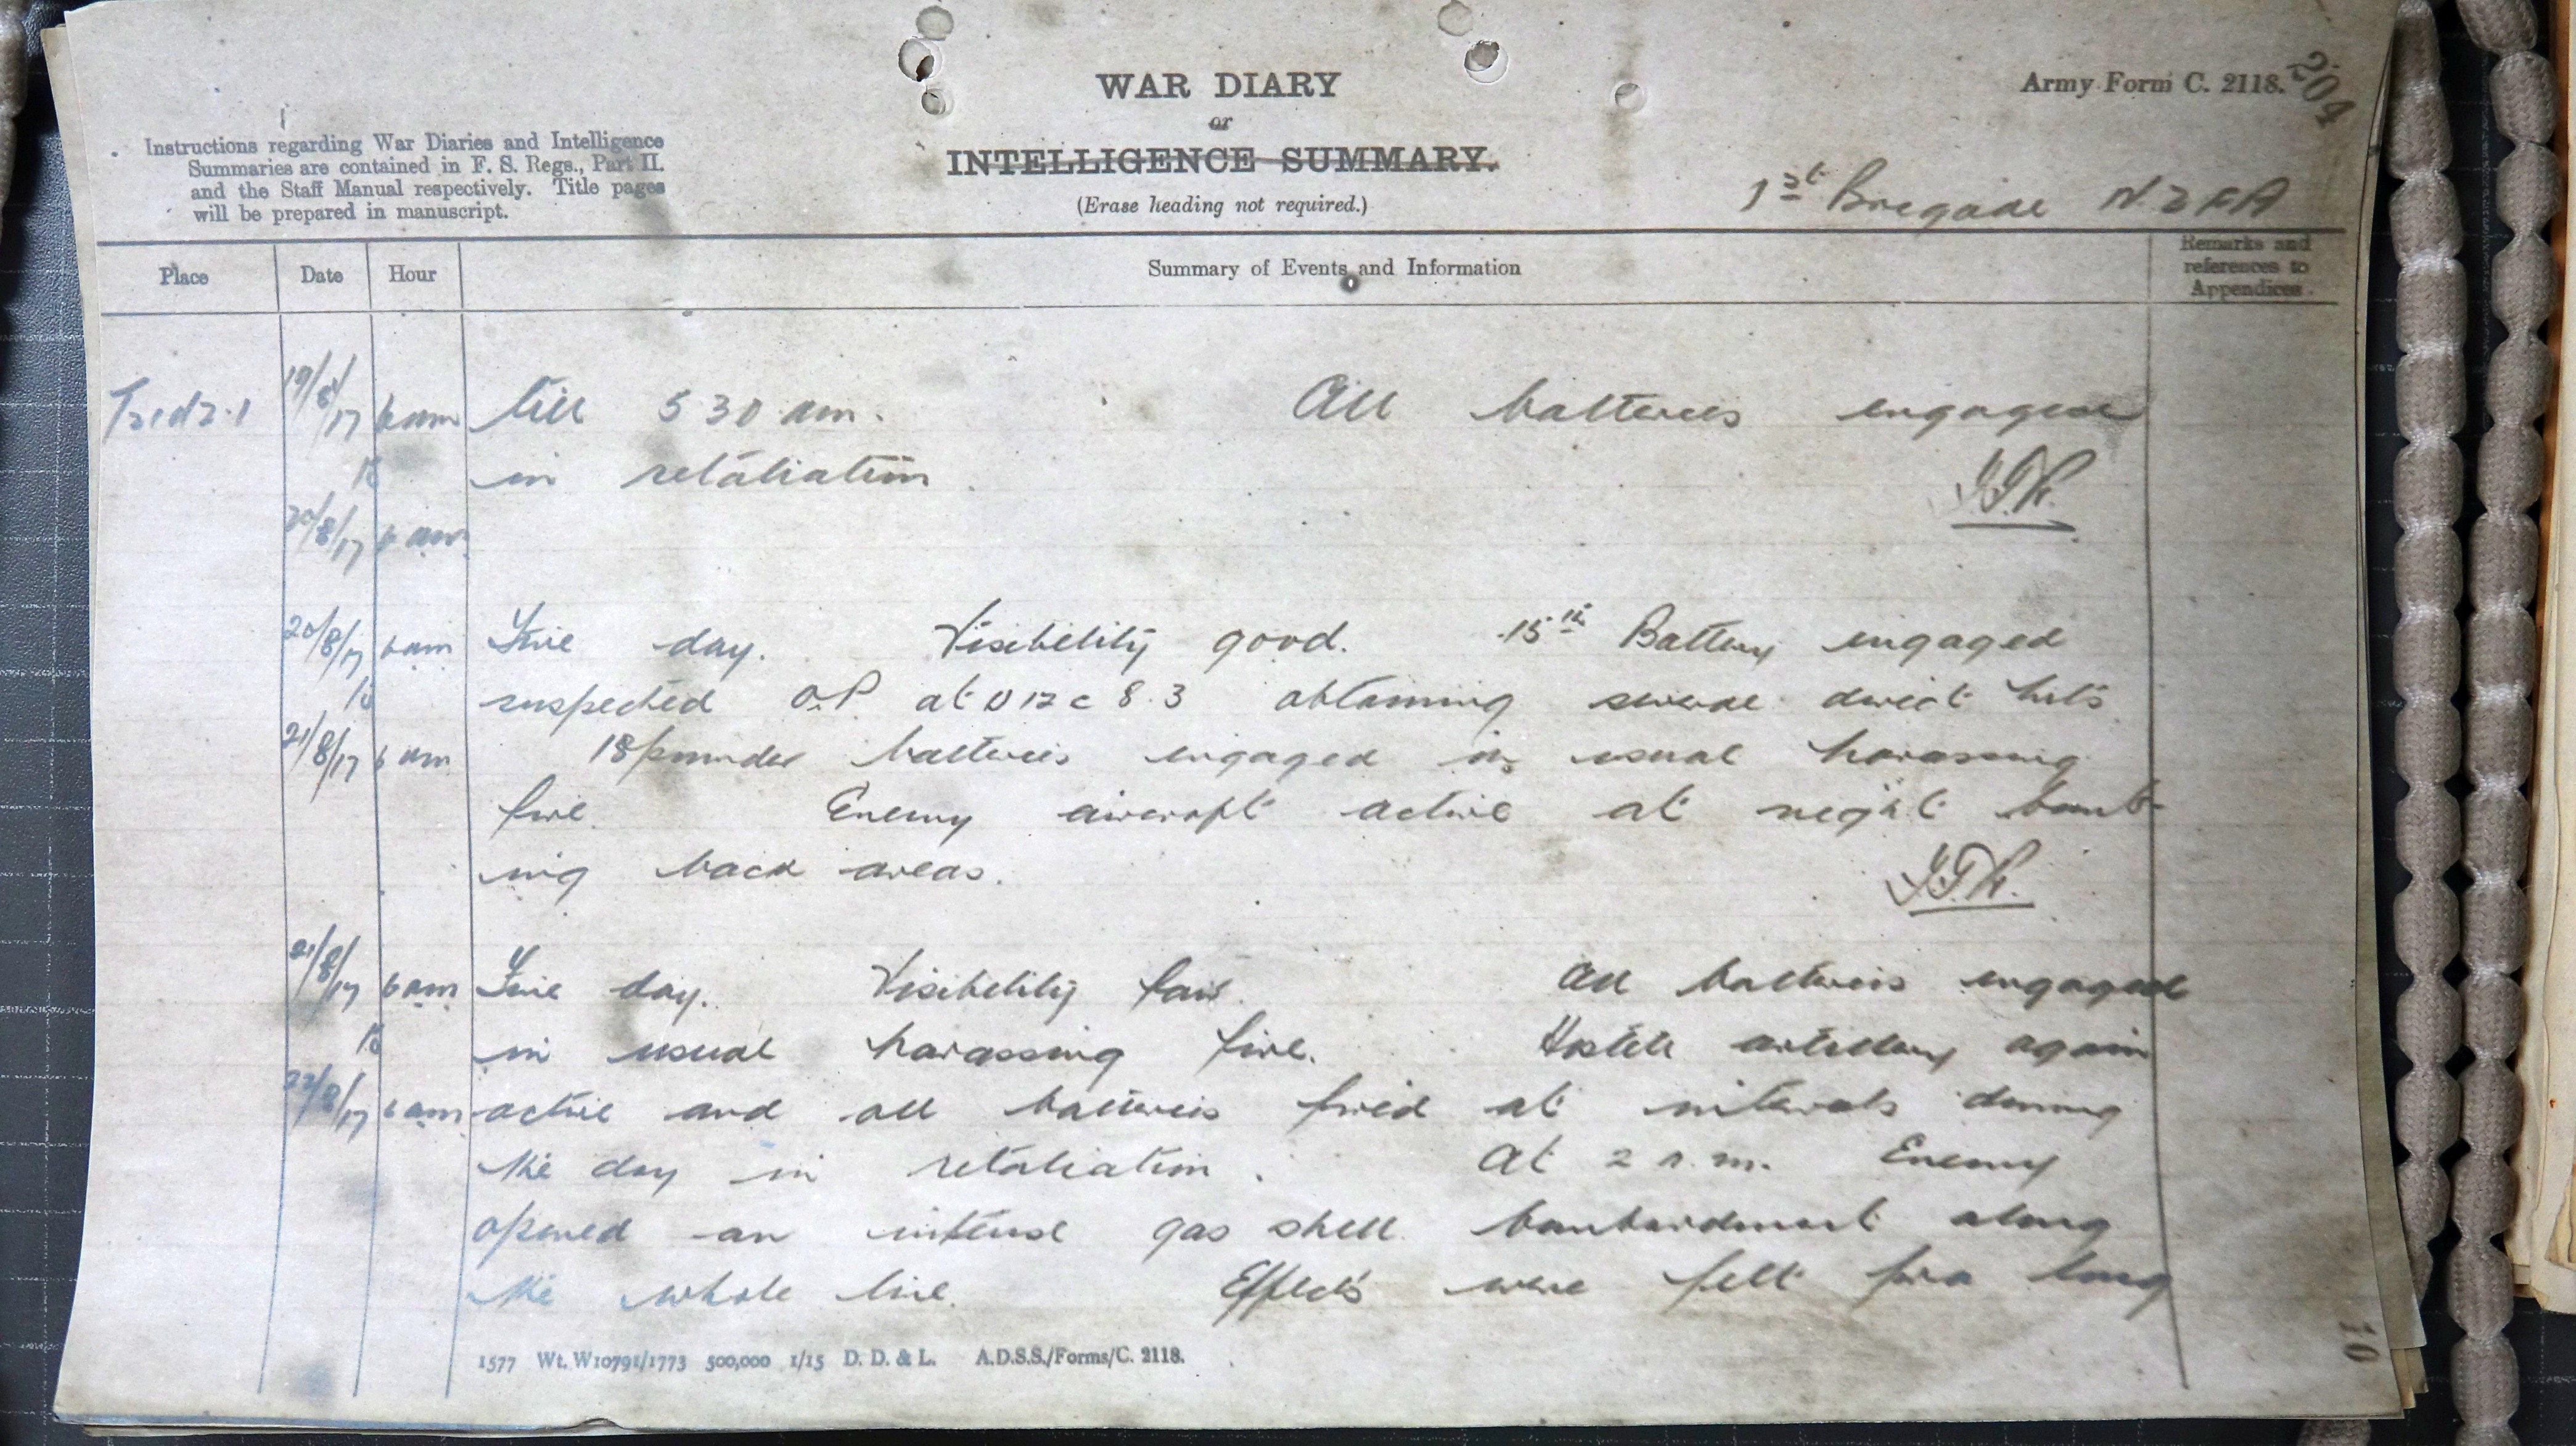 WAR DIARY
or
INTELLIGENCE SUMMARY.
(Erase heading not required.)
Army Form C. 2118.
204
Instructions regarding War Diaries and Intelligence
Summaries are contained in F. S. Regs., Part II.
and the Staff Manual respectively. Title pages
will be prepared in manuscript.
1st Brigade N Z F A
Place Date Hour Summary of Events and Information Remarks and
references to
Appendices
19/8/17 6 am till 5 30 am. All batteries engaged
to in retaliation
20/8/17 6 am
20/8/17 6 am Fine day. Visibility good. 15th Battery engaged
to suspected O.P. at U 12 c 8.3 obtaining several direct hits
21/8/17 6 am 18 pounder batteries engaged in usual harassing
fire. Enemy aircraft active at night bomb-
ing back areas.
21/8/17 6 am Fine day. Visibility fair. All batteries engaged
to in usual harassing fire. Hostile artillery again
22/8/17 6 am active and all batteries fired at intervals during
the day in retaliation. At 2 a.m. Enemy
opened an intense gas shell bombardment along
the whole line. Effects were felt for a long
1577 Wt. W10791/1773 500,000 1/15 D. D. & L. A.D.S.S./Forms/C. 2118.
10